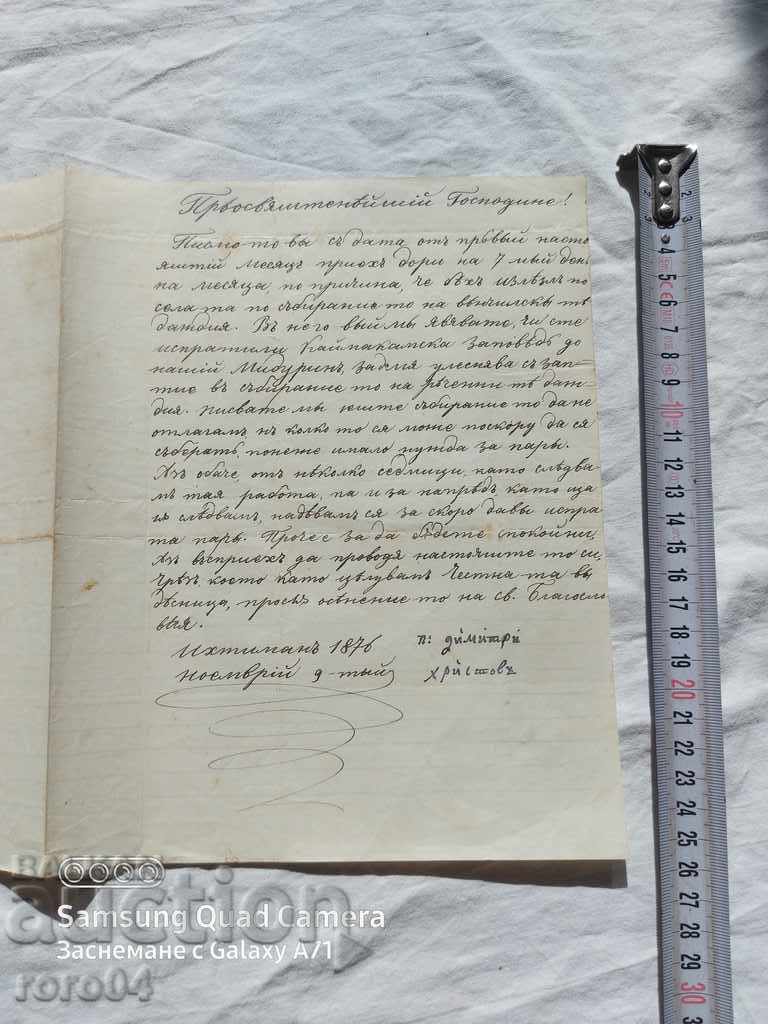 Првосвямтенѣйшій Господине!
Писмо то вы съ дата, отъ првый насто
ящтій месяцъ пріохъ дори на 7 мый ден
на месяца, по причина, че бѣхъ излѣзлъ по
села та по събираніе то на вѫнчилскы тѣ
даждія. Въ него вый мы явявате, чи сте
испратили Каймакамска заповѣдь до
нашій Мидуринъ, за да улеснява съ зап-
тіе въ събираніе то на рѣченни тѣ даж-
дия. писвате мы юште събираніе то да не
отлагамъ нъ колко то ся може поскору да ся
съберѫтъ, понеже имало нужда за пары.
Азъ обаче, отъ нѣколко седмици, като слѣдва
мъ тая работа, па и за напрѣдъ като ща
ѭ слѣдвамъ, надѣвамъ ся за скоро да вы испра
тѫ пары. Прочее за да бѫдете спокойни,
Азъ въспріехъ да проводя настояште то си,
чрѣз което като цѣлувамъ Честна та вы
дѣсница, просѭ осѣнение то на св. Благосло
вія.
Ихтиманъ 1876
Ноемврій 9-тый
п: димитрі
христовъ
Balkan
auction
Samsung Quad Camera
Заснемане с Galaxy A71
roro04
2
3
4
5
6
7
8
9
10
11
12
13
14
15
16
17
18
19
20
21
22
23
24
25
26
27
28
29
30